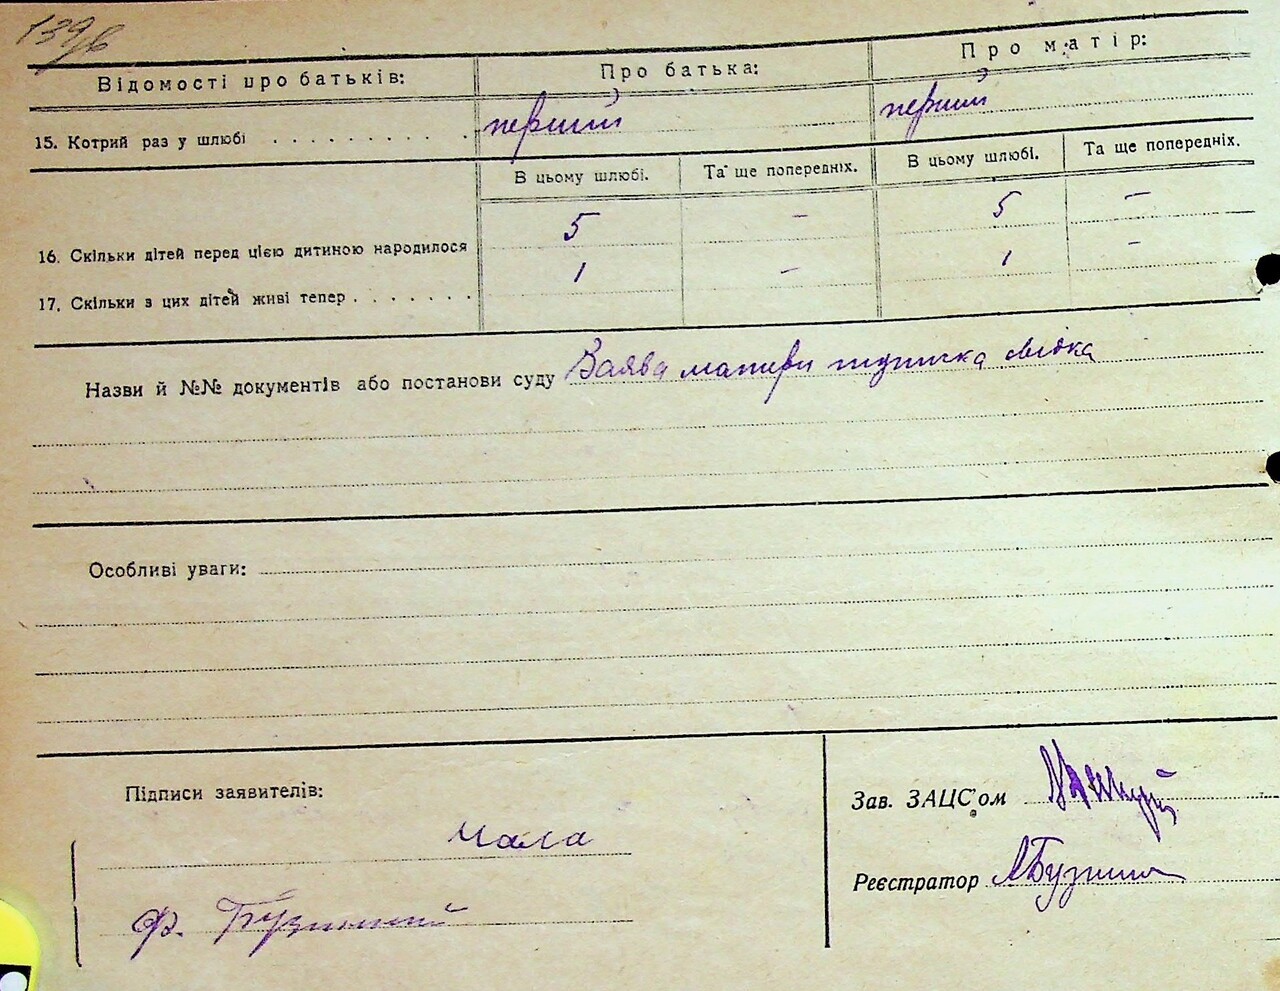 139в
Відомості про батьків: Про батька: Про матір:
15. Котрий раз у шлюбі . . . . . . . . . . перший перший
В цьому шлюбі. Та ще попередніх. В цьому шлюбі. Та ще попередніх.
16. Скільки дітей перед цією дитиною народилося 5 – 5 –
17. Скільки з цих дітей живі тепер . . . . . . . 1 – 1 –
Назви й №№ документів або постанови суду Заява матери підписка свідка
Особливі уваги:
Підписи заявителів:
Зав. ЗАЦС'ом
Мала
Реєстратор
Ф.